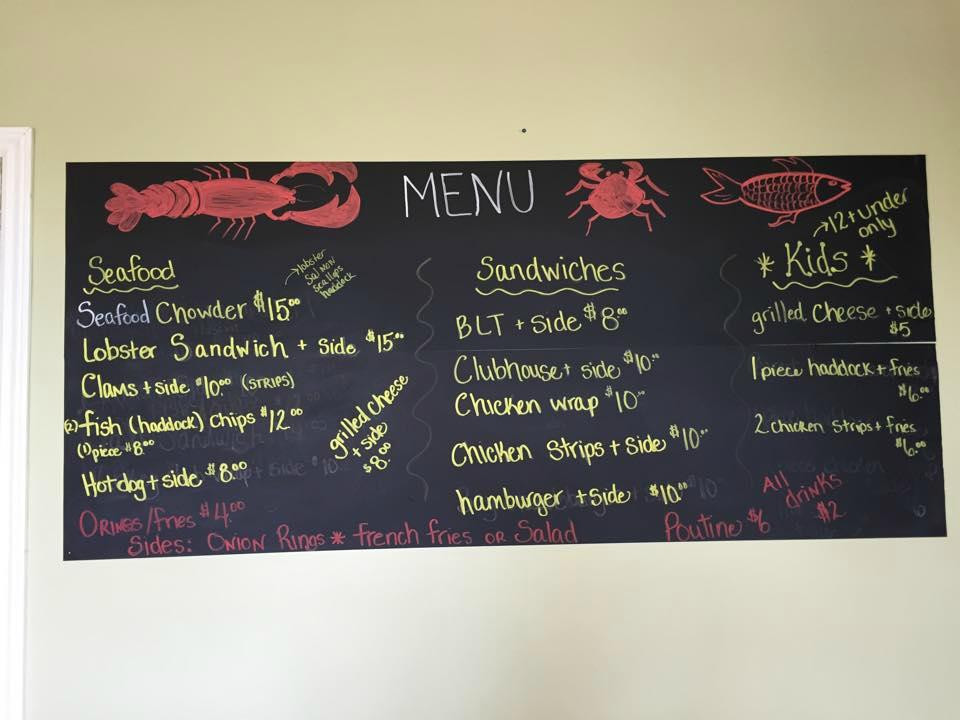 MENU
Seafood
→lobster
salmon
scallops
haddock
Seafood Chowder $15.00
Lobster Sandwich + side $15.00
Clams + side $10.00 (STRIPS)
(2) fish (haddock) chips $12.00
(1) piece $8.00
Hotdog + side $8.00
grilled cheese
+ side
$8.00
Sandwiches
BLT + side $8.00
Clubhouse + side $10.00
Chicken wrap $10.00
Chicken Strips + Side $10.00
hamburger + side $10.00
→12 + under
only
* Kids *
grilled cheese + side
$5
1 piece haddock + fries
$6.00
2 chicken strips + fries
$6.00
All
drinks
$2
O RINGS/fries $4.00
Sides: ONION Rings * french fries OR Salad
Poutine $6